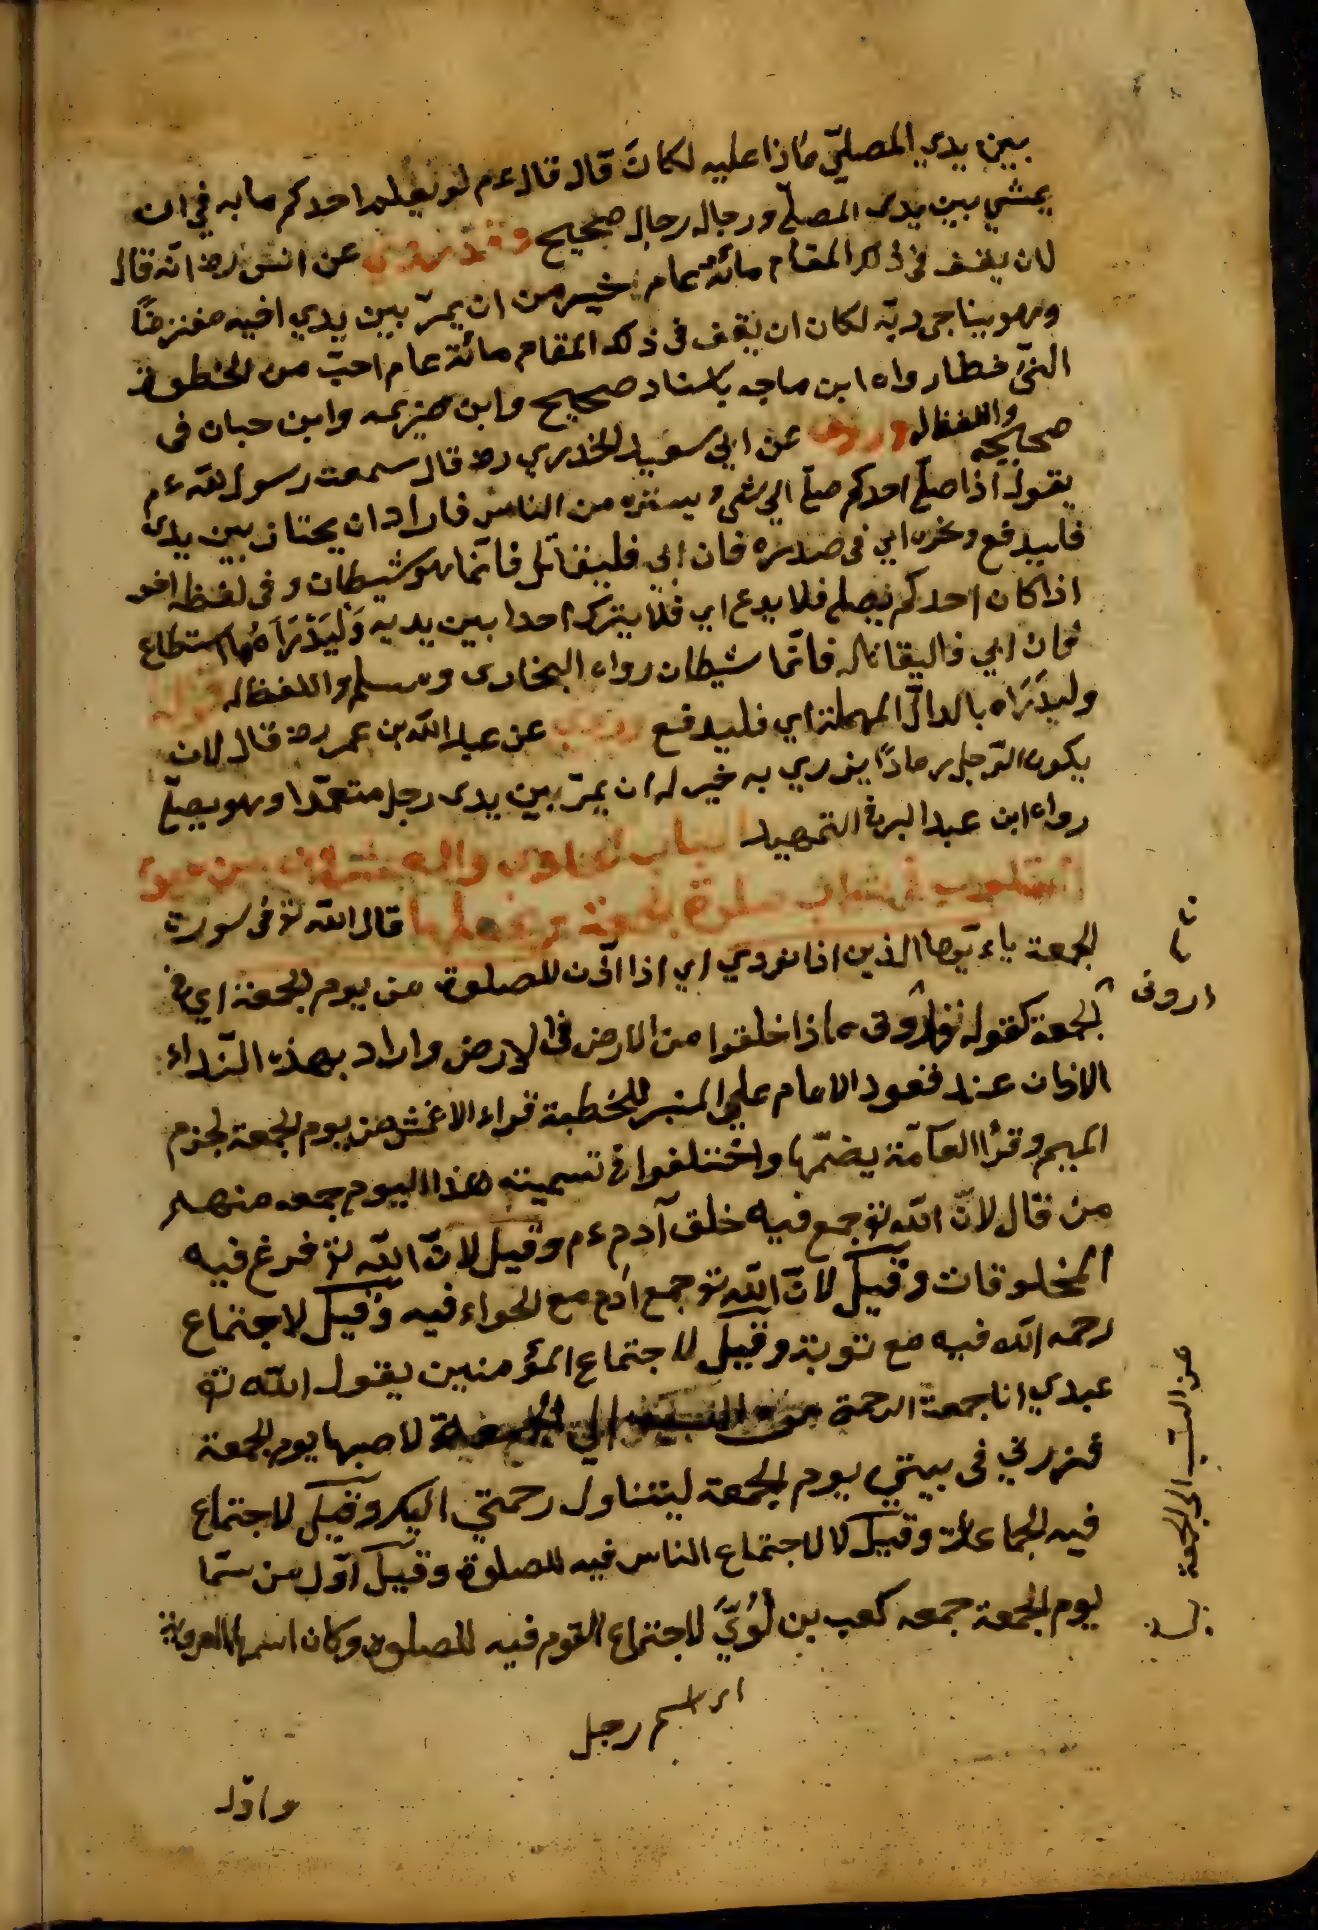 بين يدي المصلّي ماذا عليه لكانَ قال قال ءم لو يعلم احدكم ما به في ان
يمشي بين يدى المصلّي ورجاله رجال صحيح وقد روي عن انس رضـ انّه قال
لان يقف فى ذلك المقام مائة عام خير من ان يمرّ بين يدي اخيه معترضاً
وهو يناجى ربّه لكان ان يقف فى ذلك المقام مائة عام احبّ من الخطوة
التىّ خطا رواه ابن ماجه باسناد صحيح وابن خزيمه وابن حبان فى
صحيحه واللفظ له وروى عن ابي سعيد الخدري رضـ قال سمعت رسول الله ءم
يقول اذا صلّي احدكم صلّي الي شيء يستره من الناس فاراد ان يجتاز بين يدى
فليدفع ونحره اي فى صدره فان ابي فليقاتل فانّما هو شيطان و فى لفظ اخر
اذا كان احدكم يصلي فلا يدع اي فلا يترك احدا بين يديه وَلْيَدْرَاَهُ ما استطاع
فان ابي فاليقاتله فانّما شيطان رواه البخارى ومسلم واللفظ له قوله
وليدَرَاه بالدالّ المهملة اي فليدفع وروي عن عبد الله بن عمر رضـ قال لان
يكون الرّجل رمادًا يذري به خير له ان يمرّ بين يدى رجل متعمّدا وهو يصلّي
رواه ابن عبد البر فى التمهيد الباب الحادى والعشرون من حيوة
القلوب فى ثواب صلوة الجمعة وفضلها قال الله تع فى سورت
الجمعة ياءيّها الذين اذا نودي اي اذا اذّن للصلوة من يوم الجمعة اي فى
الجمعة كقوله تع اروني ماذا خلقوا من الارض فى الارض واراد بهذه النّداء
الاذان عند قعود الامام علي المنبر للخطبة قراء الاعمش من يوم الجمعة لجزم
الميم وقرأ العآمّة بضمّها واختلفوا فى تسميته هذا اليوم جمعه منهم
من قال لانّ الله تع جمع فيه خلق آدم ءم وقيل لانّ الله تع فرغ فيه
المخلوقات وقيل لانّ الله تع جمع ادم مع الحواء فيه وقيل لاجتماع
رحمه الله فيه مع توبة وقيل لاجتماع المؤمنين يقول الله تع
عبدي انا جمعة الرحمة من الى الجمعة لاصبها يوم الجمعة
فزرني فى بيتي يوم الجمعة ليتناول رحمتي اليكر وقيل لاجتماع
فيه الجماعات وقيل لا لاجتماع الناس فيه للصلوة وقيل اوّل من سمّا
يوم الجمعة جمعه كعب بن لُوَيّ لاجتماع القوم فيه للصلوة وكان اسمها العروبة
اى اسم رجل
واوّل
اروني
من السبت الى الجمعة